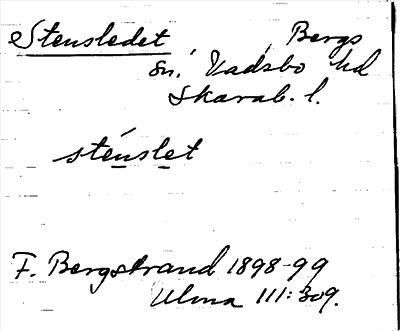 Stensledet Bergs
sn. Vadsbo hd
Skarab. l.
sténslet
F. Bergstrand 1898-99
Ulma 111:309.